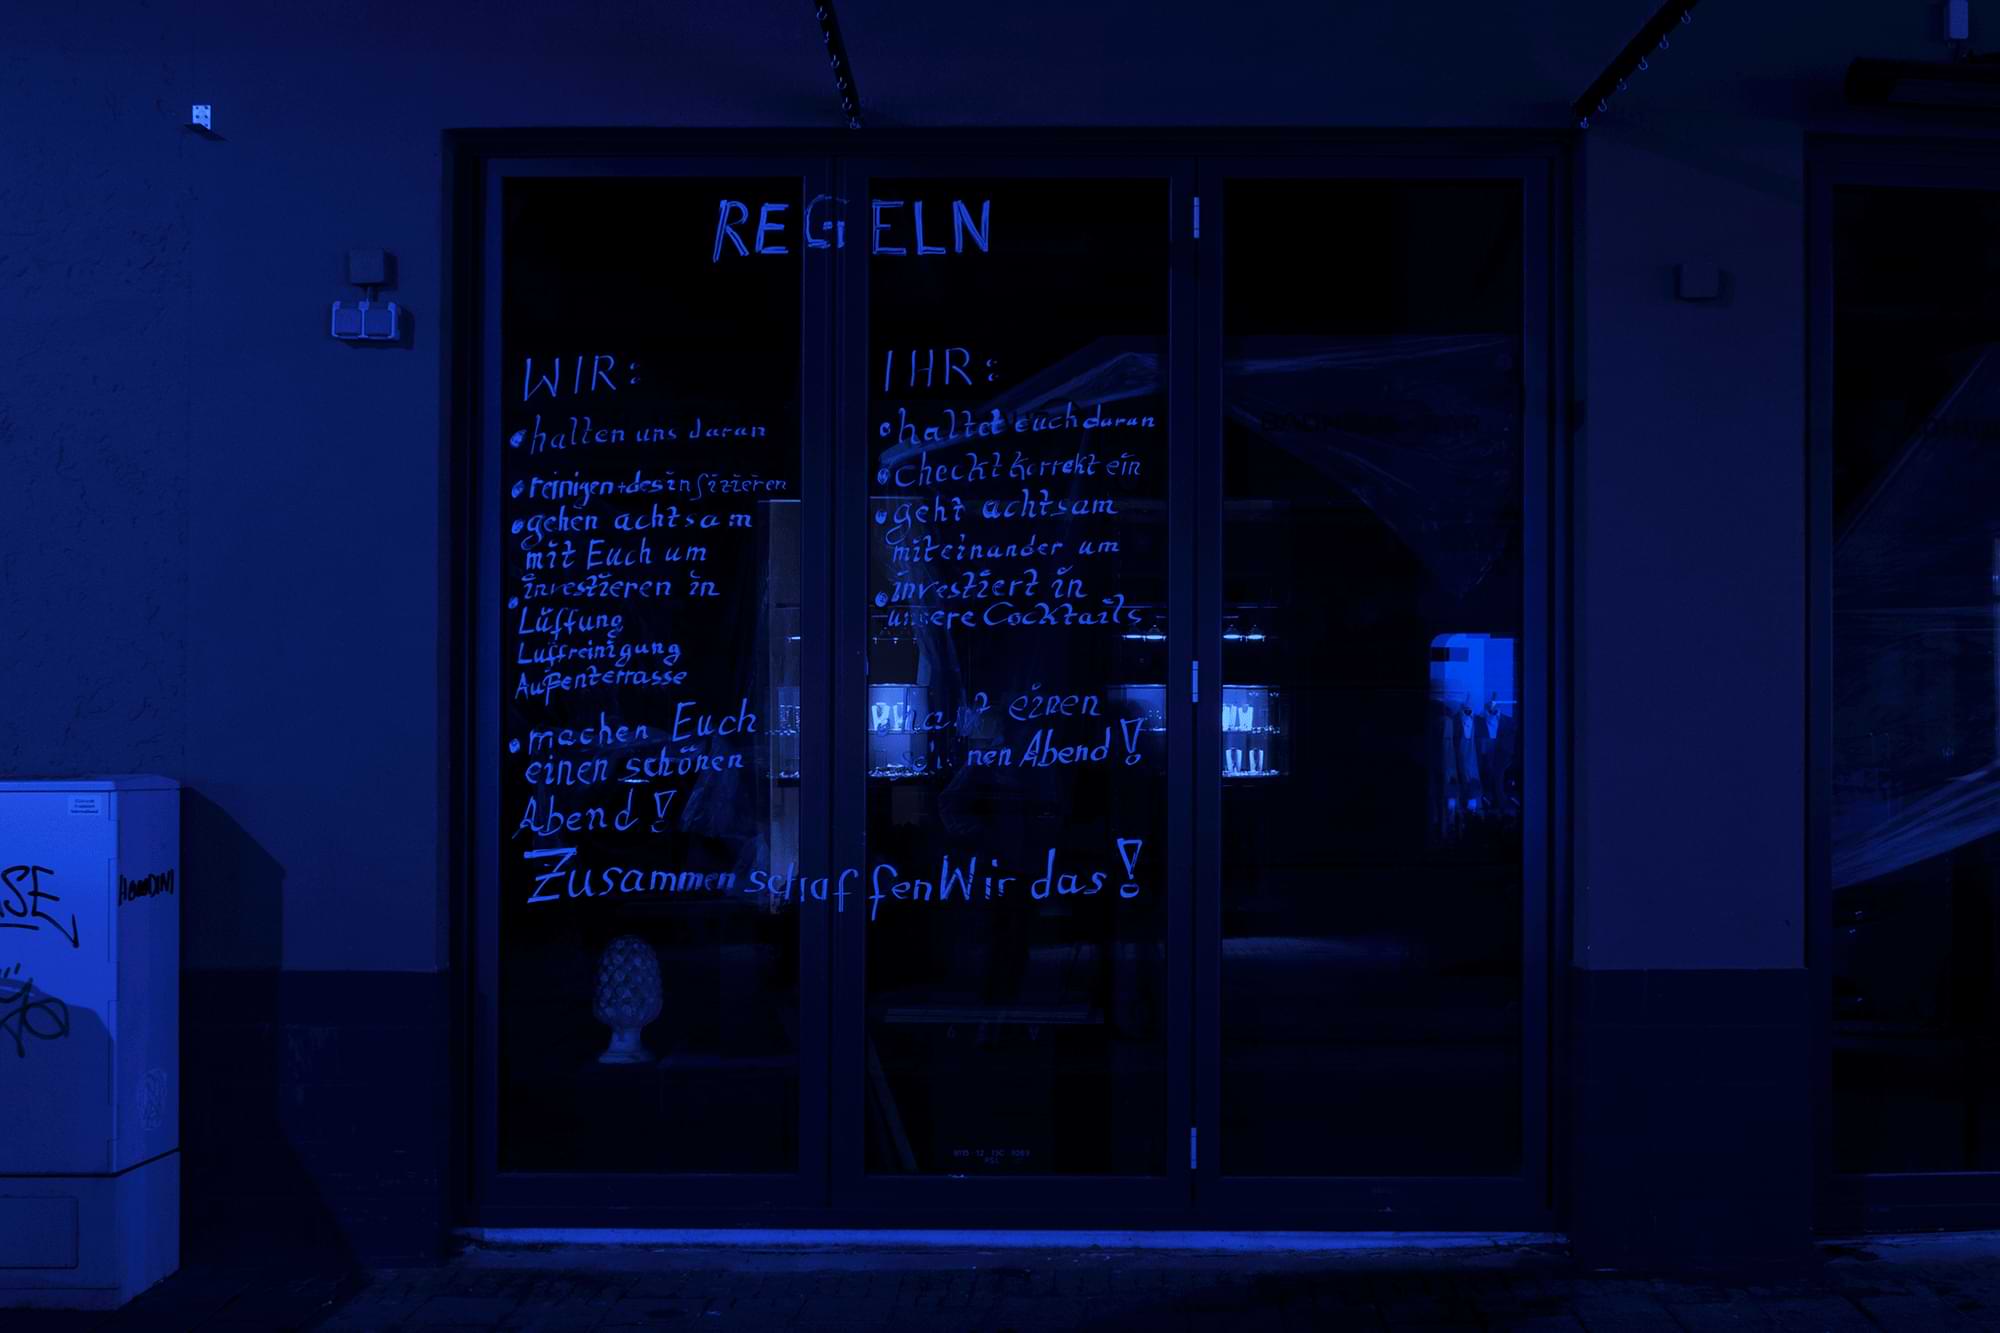 REGELN
WIR:
• halten uns daran
• reinigen + desinfizieren
• gehen achtsam
mit Euch um
• investieren in
Lüftung
Luftreinigung
Außenterrasse
• machen Euch
einen schönen
Abend!
IHR:
• haltet euch daran
• checkt korrekt ein
• geht achtsam
miteinander um
• investiert in
unsere Cocktails
• habt einen
schönen Abend!
Zusammen schaffen Wir das!
HOUDINI